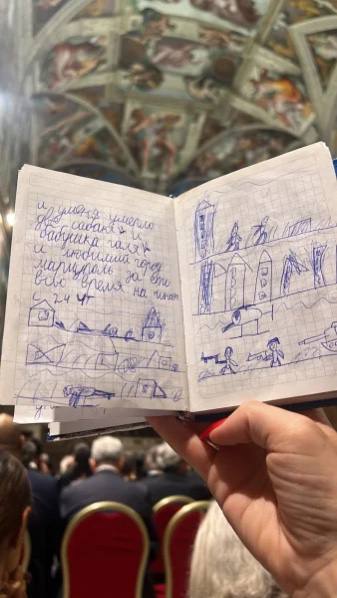 и у меня умерло
две сабаки и
бабушка галя
и любимий город
мариуполь за
время
с 24